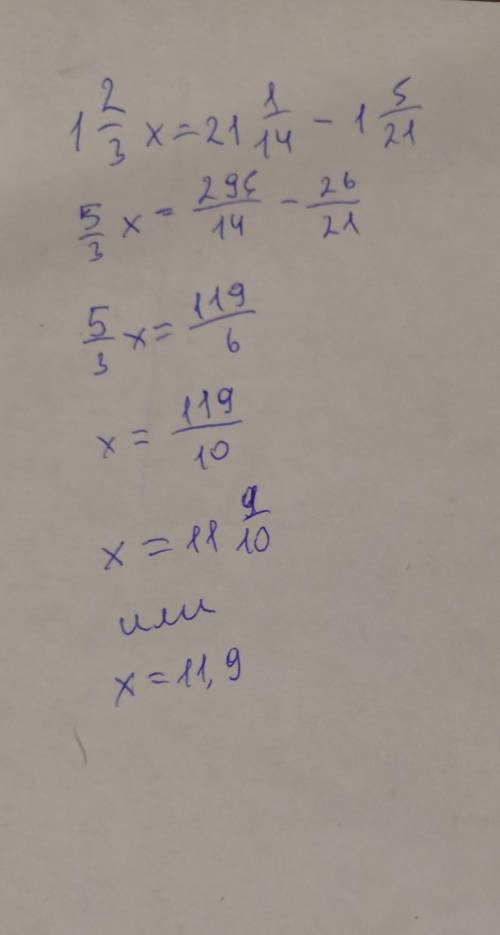 1 2/3 x = 21 1/14 - 1 5/21
5/3 x = 295/14 - 26/21
5/3 x = 119/6
x = 119/10
x = 11 9/10
или
x = 11,9